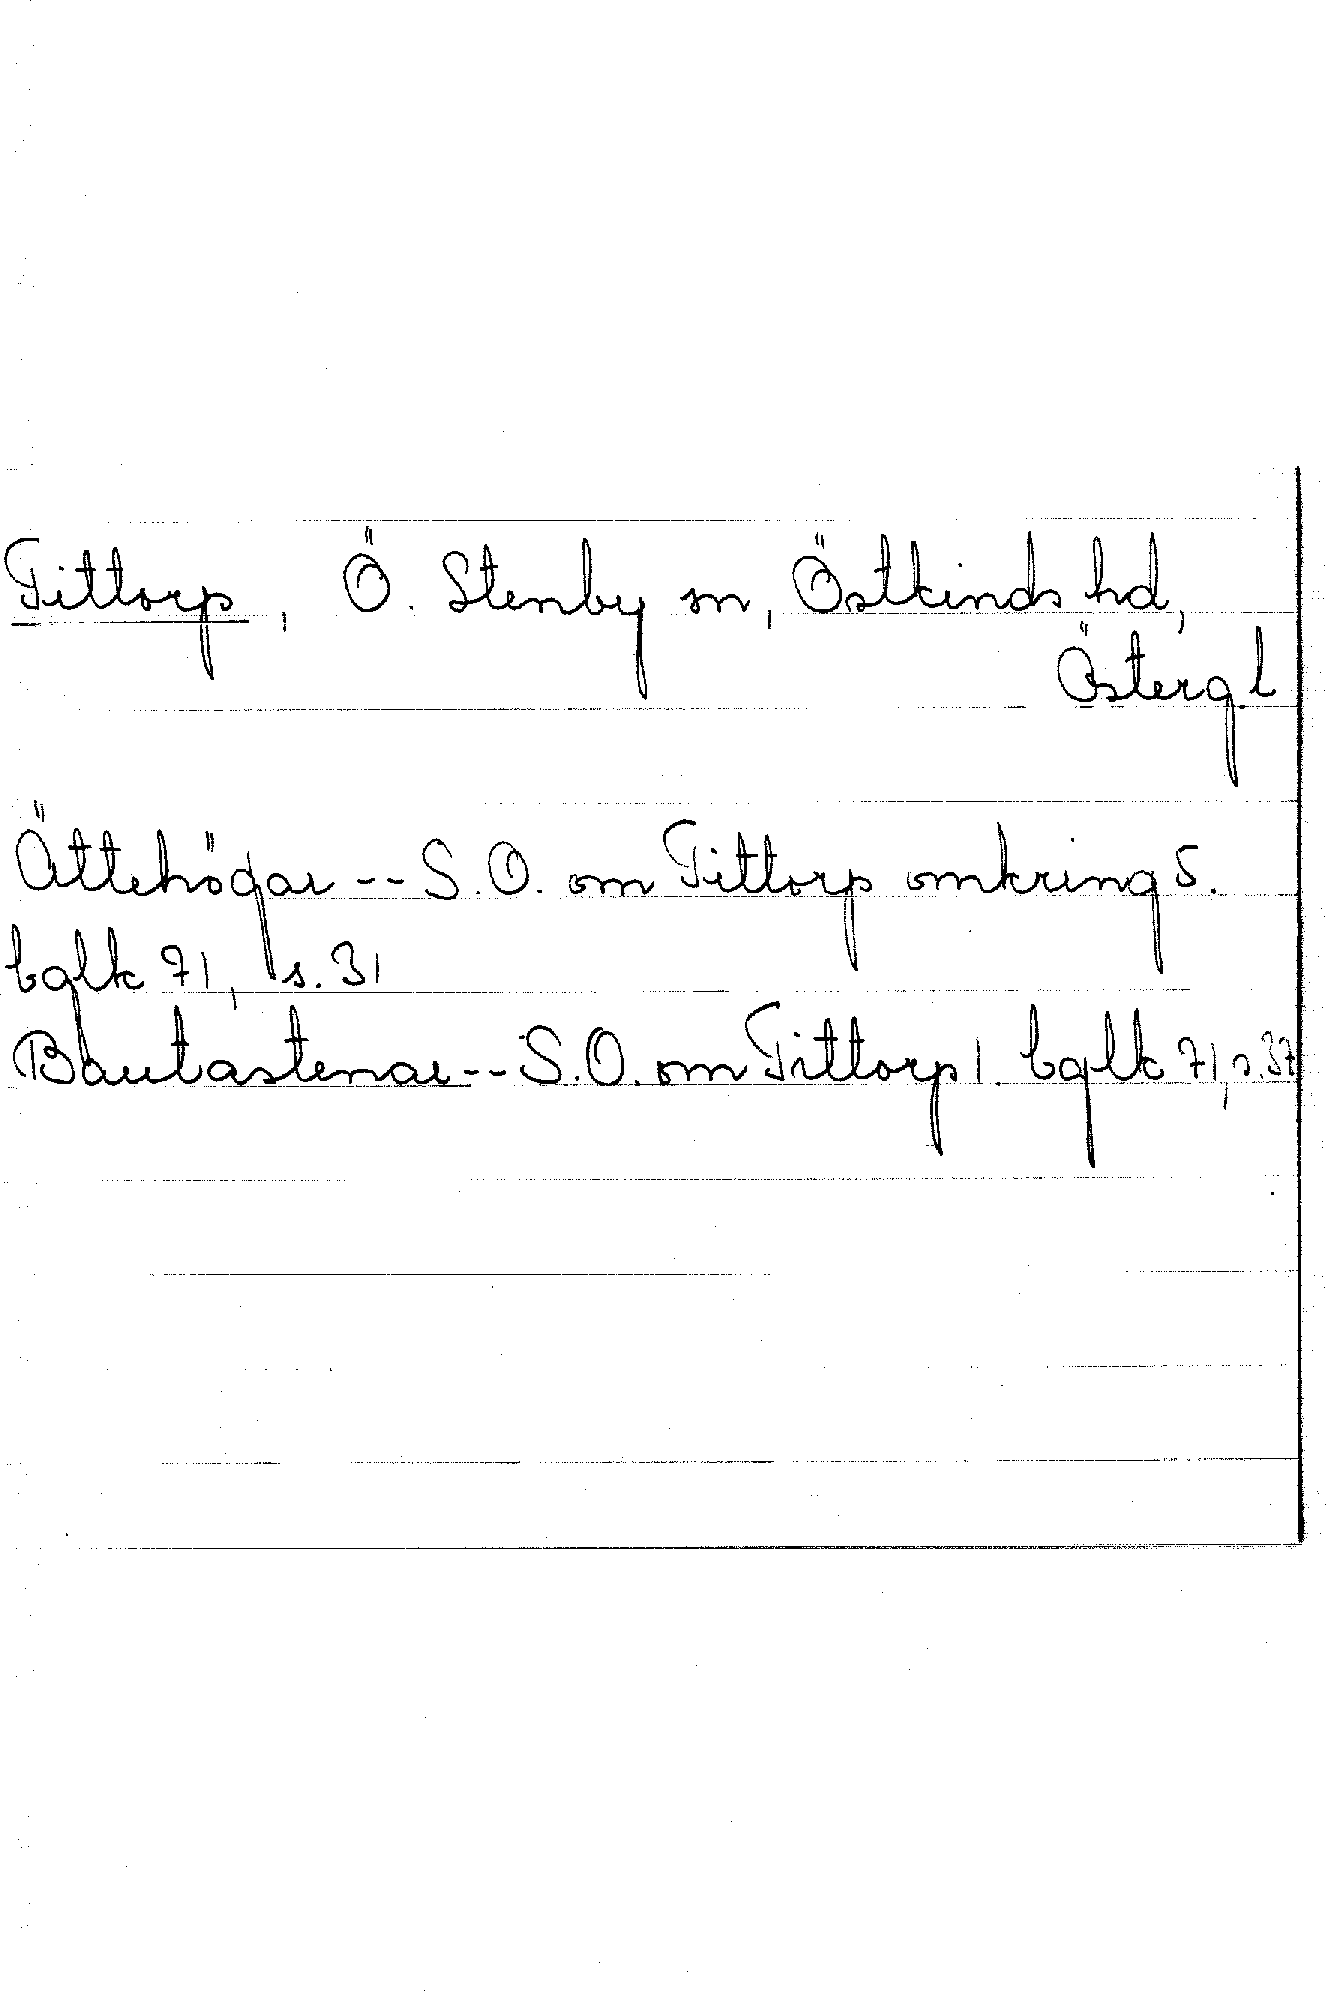 Tittorp, Ö. Stenby sn, Östkinds hd,
Österg.l
Ättehögar -- S.O. om Tittorp omkring 5.
bglk 71, s. 31
Bautastenar -- S.O. om Tittorp 1. bglk 71, s. 37